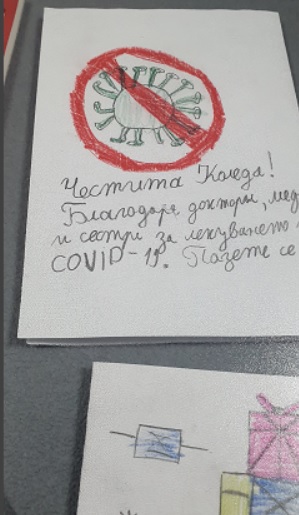 Честита Коледа!
Благодаря доктори, мед
и сестри за лекуването
COVID-19. Пазете се